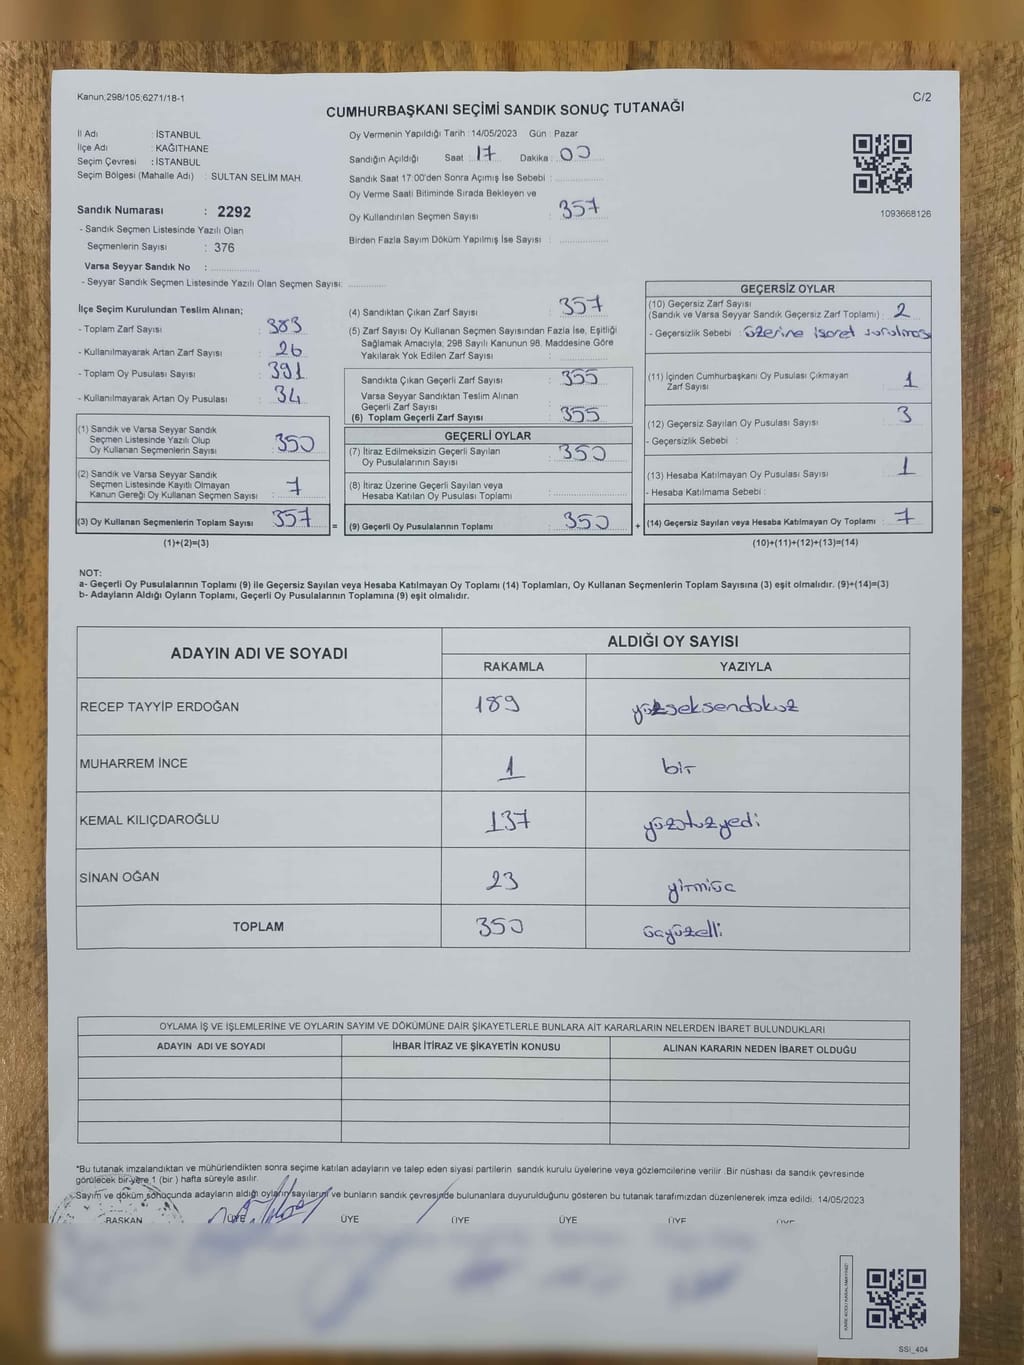 Kanun;298/105;6271/18-1
C/2
CUMHURBAŞKANI SEÇİMİ SANDIK SONUÇ TUTANAĞI
İl Adı : İSTANBUL
İlçe Adı : KAĞITHANE
Seçim Çevresi : İSTANBUL
Seçim Bölgesi (Mahalle Adı) : SULTAN SELİM MAH.
Sandık Numarası : 2292
- Sandık Seçmen Listesinde Yazılı Olan
Seçmenlerin Sayısı : 376
Varsa Seyyar Sandık No :
- Seyyar Sandık Seçmen Listesinde Yazılı Olan Seçmen Sayısı:
Oy Vermenin Yapıldığı Tarih : 14/05/2023 Gün : Pazar
Sandığın Açıldığı Saat : 17 Dakika : 00
Sandık Saat 17:00'den Sonra Açımış İse Sebebi :
Oy Verme Saati Bitiminde Sırada Bekleyen ve
Oy Kullandırılan Seçmen Sayısı : 357
Birden Fazla Sayım Döküm Yapılmış İse Sayısı :
1093668126
İlçe Seçim Kurulundan Teslim Alınan;
- Toplam Zarf Sayısı : 383
- Kullanılmayarak Artan Zarf Sayısı : 26
- Toplam Oy Pusulası Sayısı : 391
- Kullanılmayarak Artan Oy Pusulası : 34
(1) Sandık ve Varsa Seyyar Sandık
Seçmen Listesinde Yazılı Olup
Oy Kullanan Seçmenlerin Sayısı : 350
(2) Sandık ve Varsa Seyyar Sandık
Seçmen Listesinde Kayıtlı Olmayan
Kanun Gereği Oy Kullanan Seçmen Sayısı : 7
(3) Oy Kullanan Seçmenlerin Toplam Sayısı : 357
(1)+(2)=(3)
=
(4) Sandıktan Çıkan Zarf Sayısı : 357
(5) Zarf Sayısı Oy Kullanan Seçmen Sayısından Fazla İse, Eşitliği
Sağlamak Amacıyla; 298 Sayılı Kanunun 98. Maddesine Göre
Yakılarak Yok Edilen Zarf Sayısı :
Sandıkta Çıkan Geçerli Zarf Sayısı : 355
Varsa Seyyar Sandıktan Teslim Alınan
Geçerli Zarf Sayısı :
(6) Toplam Geçerli Zarf Sayısı : 355
GEÇERLİ OYLAR
(7) İtiraz Edilmeksizin Geçerli Sayılan
Oy Pusulalarının Sayısı : 350
(8) İtiraz Üzerine Geçerli Sayılan veya
Hesaba Katılan Oy Pusulası Toplamı :
(9) Geçerli Oy Pusulalarının Toplamı : 350
+
GEÇERSİZ OYLAR
(10) Geçersiz Zarf Sayısı
(Sandık ve Varsa Seyyar Sandık Geçersiz Zarf Toplamı) : 2
- Geçersizlik Sebebi : üzerine işaret
(11) İçinden Cumhurbaşkanı Oy Pusulası Çıkmayan
Zarf Sayısı : 1
(12) Geçersiz Sayılan Oy Pusulası Sayısı : 3
- Geçersizlik Sebebi :
(13) Hesaba Katılmayan Oy Pusulası Sayısı : 1
- Hesaba Katılmama Sebebi :
(14) Geçersiz Sayılan veya Hesaba Katılmayan Oy Toplamı : 7
(10)+(11)+(12)+(13)=(14)
NOT:
a- Geçerli Oy Pusulalarının Toplamı (9) ile Geçersiz Sayılan veya Hesaba Katılmayan Oy Toplamı (14) Toplamları, Oy Kullanan Seçmenlerin Toplam Sayısına (3) eşit olmalıdır. (9)+(14)=(3)
b- Adayların Aldığı Oyların Toplamı, Geçerli Oy Pusulalarının Toplamına (9) eşit olmalıdır.
ADAYIN ADI VE SOYADI ALDIĞI OY SAYISI
RAKAMLA YAZIYLA
RECEP TAYYİP ERDOĞAN 189 yüzseksendokuz
MUHARREM İNCE 1 bir
KEMAL KILIÇDAROĞLU 137 yüzotuzyedi
SİNAN OĞAN 23 yirmiüç
TOPLAM 350 üçyüzelli
OYLAMA İŞ VE İŞLEMLERİNE VE OYLARIN SAYIM VE DÖKÜMÜNE DAİR ŞİKAYETLERLE BUNLARA AİT KARARLARIN NELERDEN İBARET BULUNDUKLARI
ADAYIN ADI VE SOYADI İHBAR İTİRAZ VE ŞİKAYETİN KONUSU ALINAN KARARIN NEDEN İBARET OLDUĞU
*Bu tutanak imzalandıktan ve mühürlendikten sonra seçime katılan adayların ve talep eden siyasi partilerin sandık kurulu üyelerine veya gözlemcilerine verilir .Bir nüshası da sandık çevresinde
görülecek bir yere 1 (bir ) hafta süreyle asılır.
Sayım ve döküm sonucunda adayların aldığı oyların sayılarını ve bunların sandık çevresinde bulunanlara duyurulduğunu gösteren bu tutanak tarafımızdan düzenlenerek imza edildi. 14/05/2023
BAŞKAN ÜYE ÜYE ÜYE ÜYE ÜYE ÜYE
SSİ_404